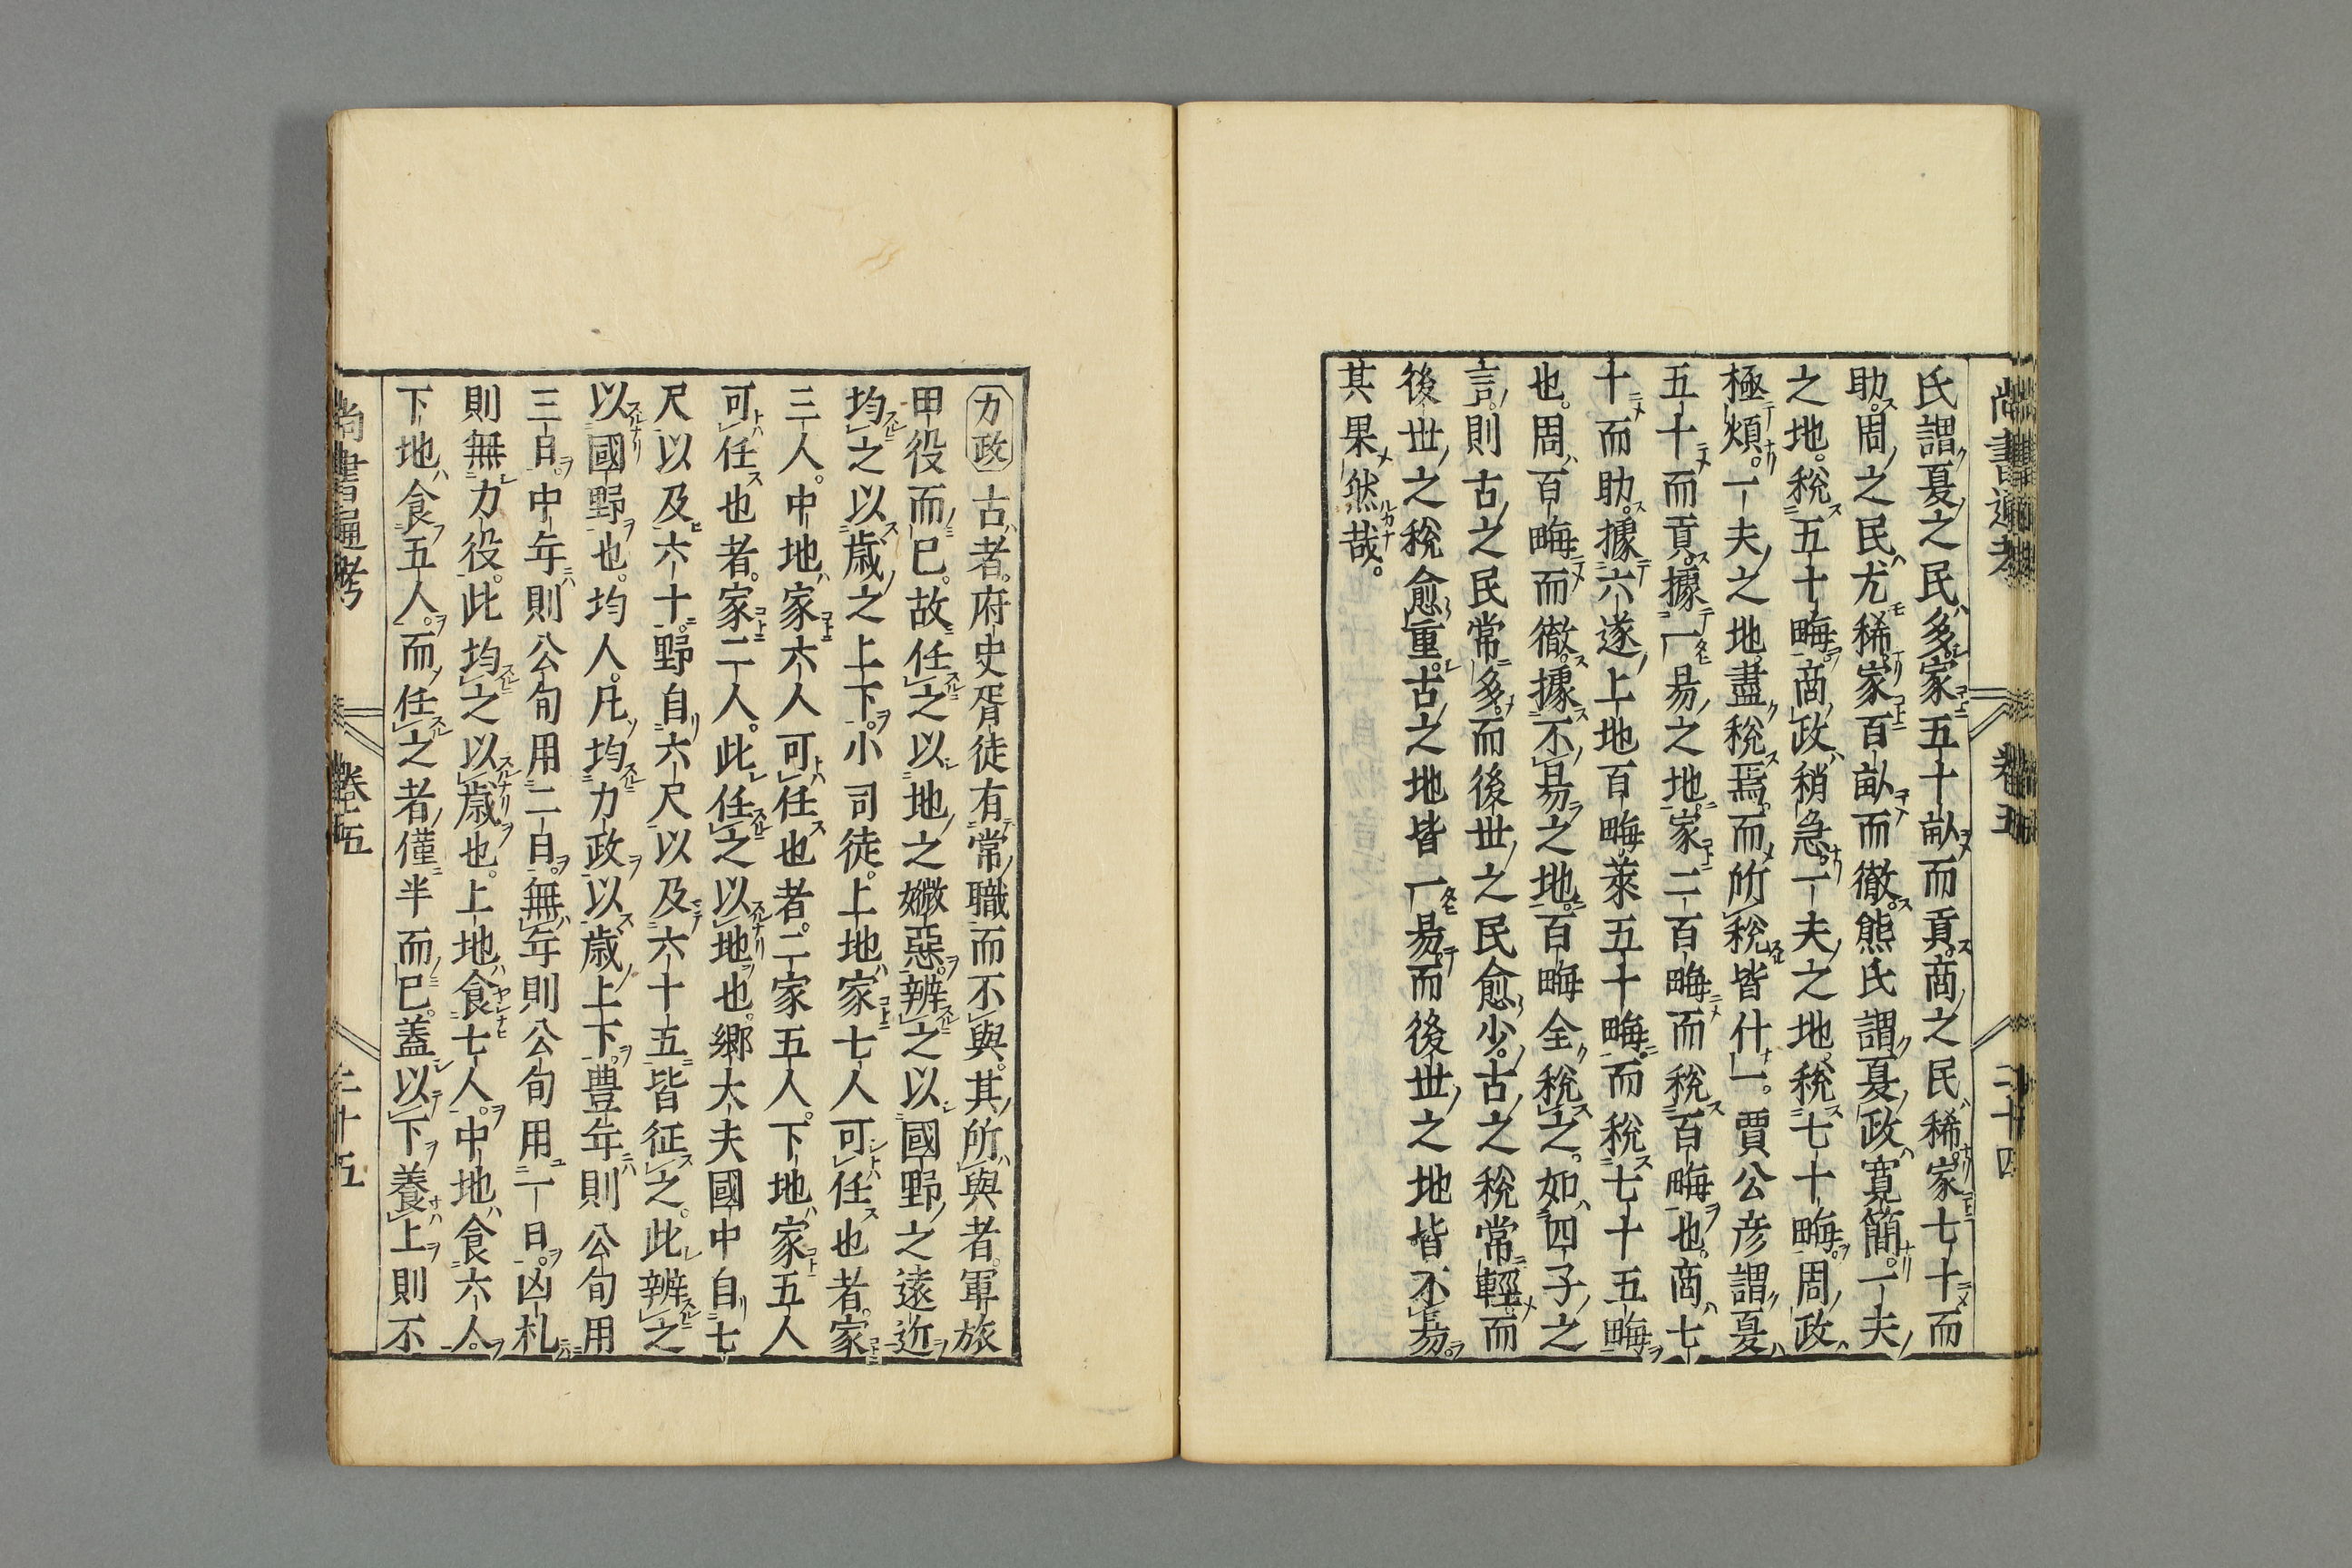 尚書通考 卷五 二十四
氏謂夏之民多家五十畝而貢商之民稀家七十而
助周之民尤稀家百畝而徹熊氏謂夏政寛簡一夫
之地稅五十畮商政稍急一夫之地稅七十畮周政
極煩一夫之地盡稅焉而所稅皆什一賈公彦謂夏
五十而貢據一易之地家二百畮而稅百畮也商七
十而助據六遂上地百畮萊五十畮而稅七十五畮
也周百畮而徹據不易之地百畮全稅之如四子之
言則古之民常多而後世之民愈少古之稅常輕而
後世之稅愈重古之地皆一易而後世之地皆不易
其果然哉
力政 古者府史胥徒有常職而不與其所與者軍旅
甲役而已故任之以地之媺惡辨之以國野之遠近
均之以歲之上下小司徒上地家七人可任也者家
三人中地家六人可任也者二家五人下地家五人
可任也者家二人此任之以地也鄉大夫國中自七
尺以及六十野自六尺以及六十五皆征之此辨之
以國野也均人凡均力政以歲上下豊年則公旬用
三日中年則公旬用二日無年則公旬用一日凶札
則無力役此均之以歲也上地食七人中地食六人
下地食五人而任之者僅半而已蓋以下養上則不
尚書通考 卷五 二十五